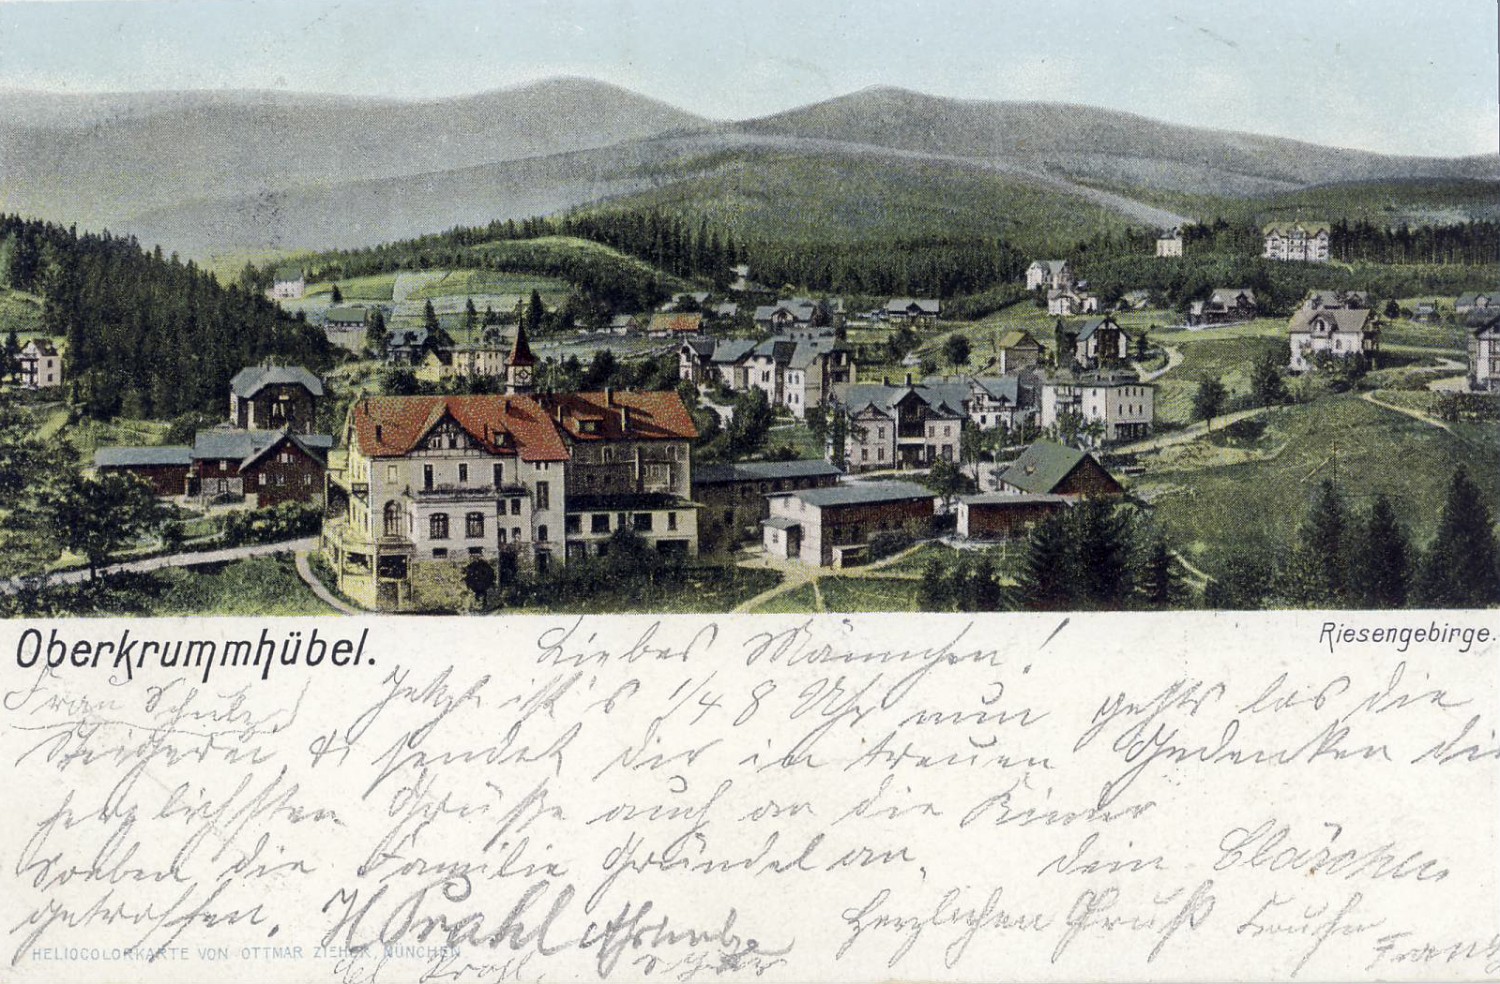 Oberkrummhübel.
Riesengebirge.
Liebes Männchen!
Frau Schulz
Jetzt ist's 1/4 8 Uhr nun gehts los die
sendet dir in treuen Gedenken die
herzlichsten Grüße auch an die Kinder
Soeben die Familie Gründel an,
Dein Clärchen
getroffen. H Prahl
Herzlichen Gruß
HELIOCOLORKARTE VON OTTMAR ZIEHER, MÜNCHEN
El. Prahl.